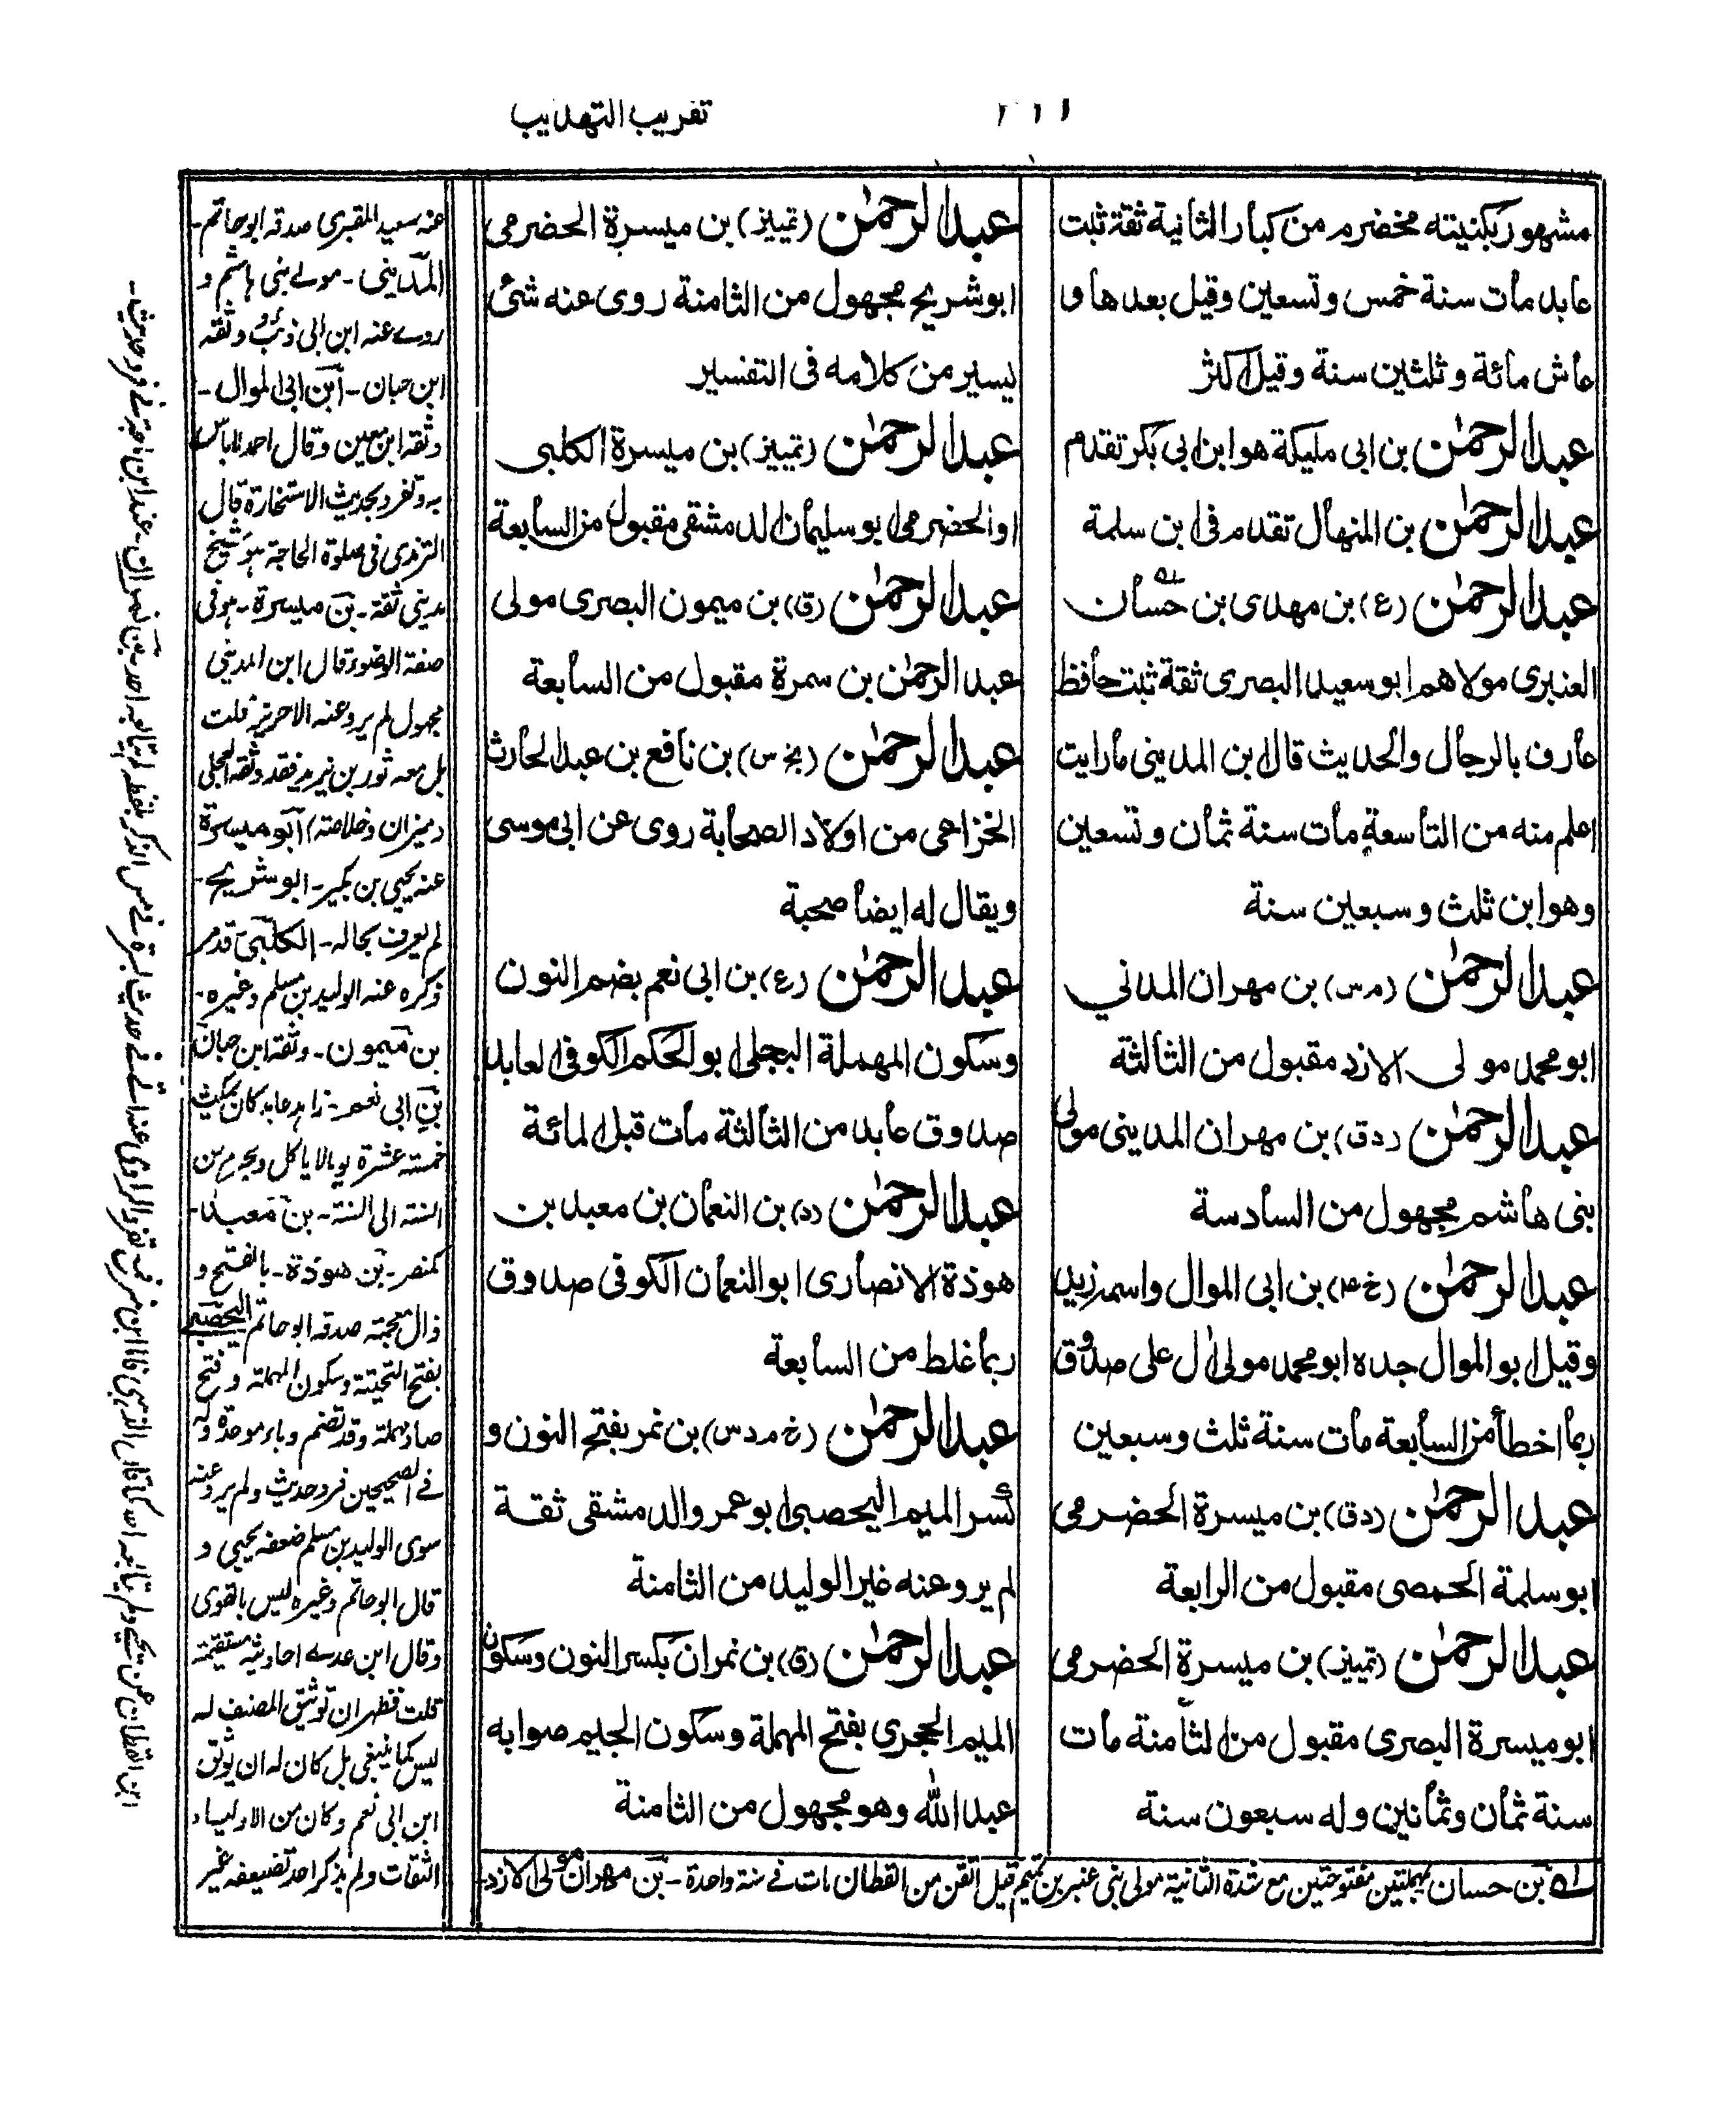 تقريب التهذيب
مشهور بكنيته مخضرم من كبار الثانية ثقة ثبت
عابد مات سنة خمس وتسعين وقيل بعدها و
عاش مائة وثلثين سنة وقيل اكثر
عبد الرحمٰن بن ابى مليكة هو ابن ابى بكر تقدم
عبد الرحمٰن بن المنهال تقدم فى ابن سلمة
عبد الرحمٰن (ع) بن مهدى بن حسان
العنبرى مولاهم ابو سعيد البصرى ثقة ثبت حافظ
عارف بالرجال والحديث قال ابن المدينى ما رايت
اعلم منه من التاسعة مات سنة ثمان وتسعين
وهو ابن ثلث وسبعين سنة
عبد الرحمٰن (م س) بن مهران المدني
ابو محمد مولى الازد مقبول من الثالثة
عبد الرحمٰن (د ق) بن مهران المدينى مولى
بنى هاشم مجهول من السادسة
عبد الرحمٰن (خ عه) بن ابى الموال واسمه زيد
وقيل ابو الموال جده ابو محمد مولى اٰل على صدوق
ربما اخطأ من السابعة مات سنة ثلث وسبعين
عبد الرحمٰن (د ق) بن ميسرة الحضرمى
ابو سلمة الحمصى مقبول من الرابعة
عبد الرحمٰن (تمييز) بن ميسرة الحضرمى
ابو ميسرة البصرى مقبول من الثامنة مات
سنة ثمان وثمانين وله سبعون سنة
عبد الرحمٰن (تمييز) بن ميسرة الحضرمى
ابو شريح مجهول من الثامنة روى عنه شئ
يسير من كلامه فى التفسير
عبد الرحمٰن (تمييز) بن ميسرة الكلبى
او الحضرمى ابو سليمان الدمشقى مقبول من السابعة
عبد الرحمٰن (ق) بن ميمون البصرى مولى
عبد الرحمٰن بن سمرة مقبول من السابعة
عبد الرحمٰن (بخ س) بن نافع بن عبد الحارث
الخزاعى من اولاد الصحابة روى عن ابى موسى
ويقال له ايضا صحبة
عبد الرحمٰن (ع) بن ابى نعم بضم النون
وسكون المهملة البجلى ابو الحكم الكوفى العابد
صدوق عابد من الثالثة مات قبل المائة
عبد الرحمٰن (د) بن النعمان بن معبد بن
هوذة الانصارى ابو النعمان الكوفى صدوق
ربما غلط من السابعة
عبد الرحمٰن (خ م د س) بن نمر بفتح النون و
كسر الميم اليحصبى ابو عمرو الدمشقى ثقة
لم يرو عنه غير الوليد من الثامنة
عبد الرحمٰن (ق) بن نمران بكسر النون وسكون
الميم الحجرى بفتح المهملة وسكون الجيم صوابه
عبد الله وهو مجهول من الثامنة
بن حسان بمهملتين مفتوحتين مع شدة الثانية مولى بنى عنبر بن تميم قيل اتقن من القطان مات فے سنة واحدة - بن مهران مولى الازد
عنه سعيد المقبرى صدقه ابو حاتم -
المدينى - مولے بنى هاشم و
روے عنه ابن ابى ذئب وثقه
ابن حبان - ابن ابى الموال -
وثقه ابن معين وقال احمد لا باس
به وتفرد بحديث الاستخارة قال
الترمذى فى صلوة الحاجة هو شيخ
مدينى ثقة - بن ميسرة - هو فى
صفة الوضوء قال ابن المدينى
مجهول لم يرو عنه الا حريز قلت
بل معه ثور بن يزيد فقد وثقه العجلى
(ميزان وخلاصة) ابو ميسرة
عنه يحيى بن بكير - ابو شريح -
لم يعرف بحاله - الكلبى - قدم
ذكره عنه الوليد بن مسلم وغيره -
بن ميمون - وثقه ابن حبان
بن ابى نعم - زاهد عابد كان يمكث
خمسة عشرة يوما لا ياكل ويحرم من
السنة الى السنة - بن معبد -
كمنصر - بن هوذة - بالفتح و
ذال معجمة صدقه ابو حاتم اليحصبى
بفتح التحتية وسكون المهملة وفتح
صاد مهملة وقد تضم وباء موحدة له
فے الصحيحين فرد حديث ولم يرو عنه
سوى الوليد بن مسلم ضعفه يحيى و
قال ابو حاتم وغيره ليس بالقوى
وقال ابن عدے احاديثه مستقيمة
قلت فظهر ان توثيق المصنف له
ليس كما ينبغى بل كان له ان يوثق
ابن ابى نعم وكان من الاولياء
الثقات ولم يذكر احد تضعيفه غير